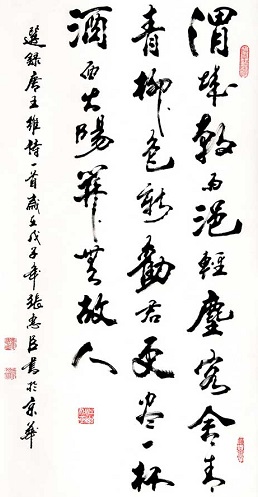 渭城朝雨浥輕塵客舍青
青柳色新勸君更尽一杯
酒西出陽關無故人
選録唐王維詩一首歲在戊子年張惠臣書於京華